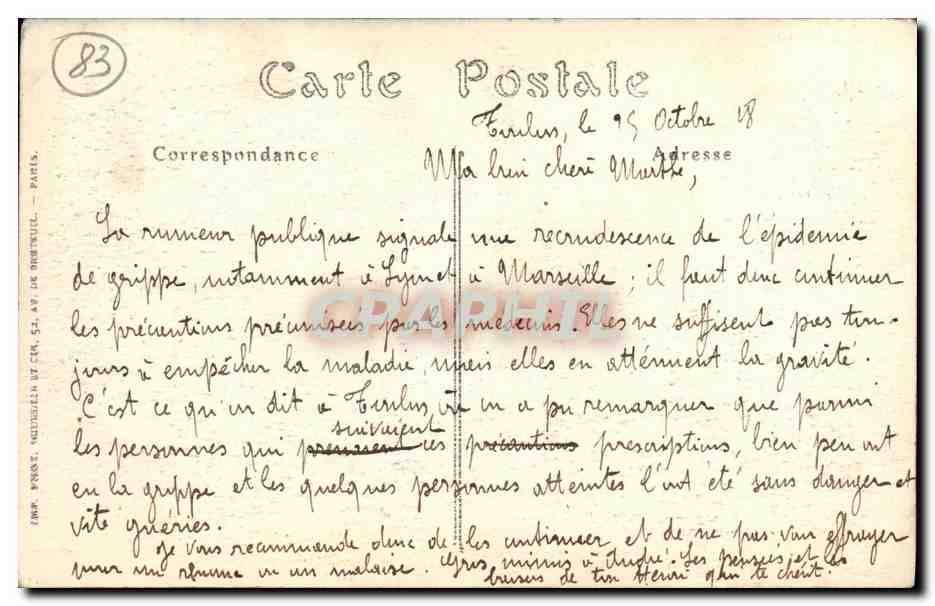 83
Carte Postale
Toulon, le 25 Octobre 18
Correspondance
Adresse
Ma bien chère Marthe,
La rumeur publique signale une recrudescence de l'épidémie
de grippe, notamment à Lyon et à Marseille ; il faut donc continuer
les précautions préconisées par les médecins. Elles ne suffisent pas tou-
jours à empêcher la maladie, mais elles en atténuent la gravité.
C'est ce qu'on dit à Toulon, où on a pu remarquer que parmi
les personnes qui prenaient suivaient ces précautions prescriptions, bien peu ont
eu la grippe et les quelques personnes atteintes l'ont été sans danger et
vite guéries.
Je vous recommande donc de les continuer et de ne pas vous effrayer
pour un rhume ou un malaise. Gros mimis à André. Les pensées et les
baisers de ton Henri qui te chérit.
CPARHIL
52, AV. DE BRETEUIL. — PARIS.